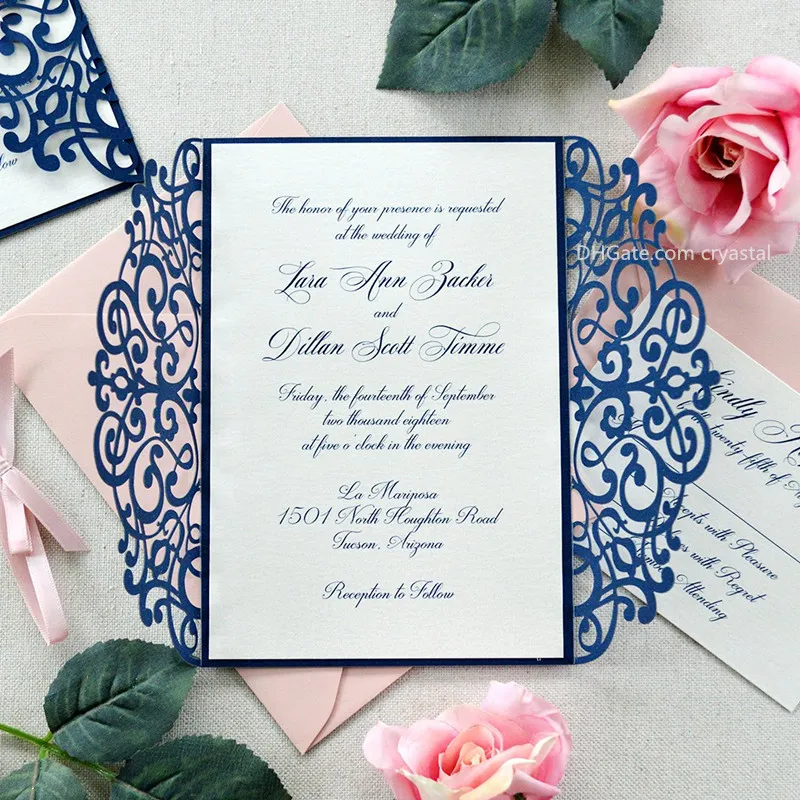 The honor of your presence is requested
at the wedding of
Lara Ann Zacher
and
Dillan Scott Timme
Friday, the fourteenth of September
two thousand eighteen
at five o'clock in the evening
La Mariposa
1501 North Houghton Road
Tucson, Arizona
Reception to Follow
DHGate.com cryastal
Kindly
twenty-fifth of
with Pleasure
with Regret
Attending